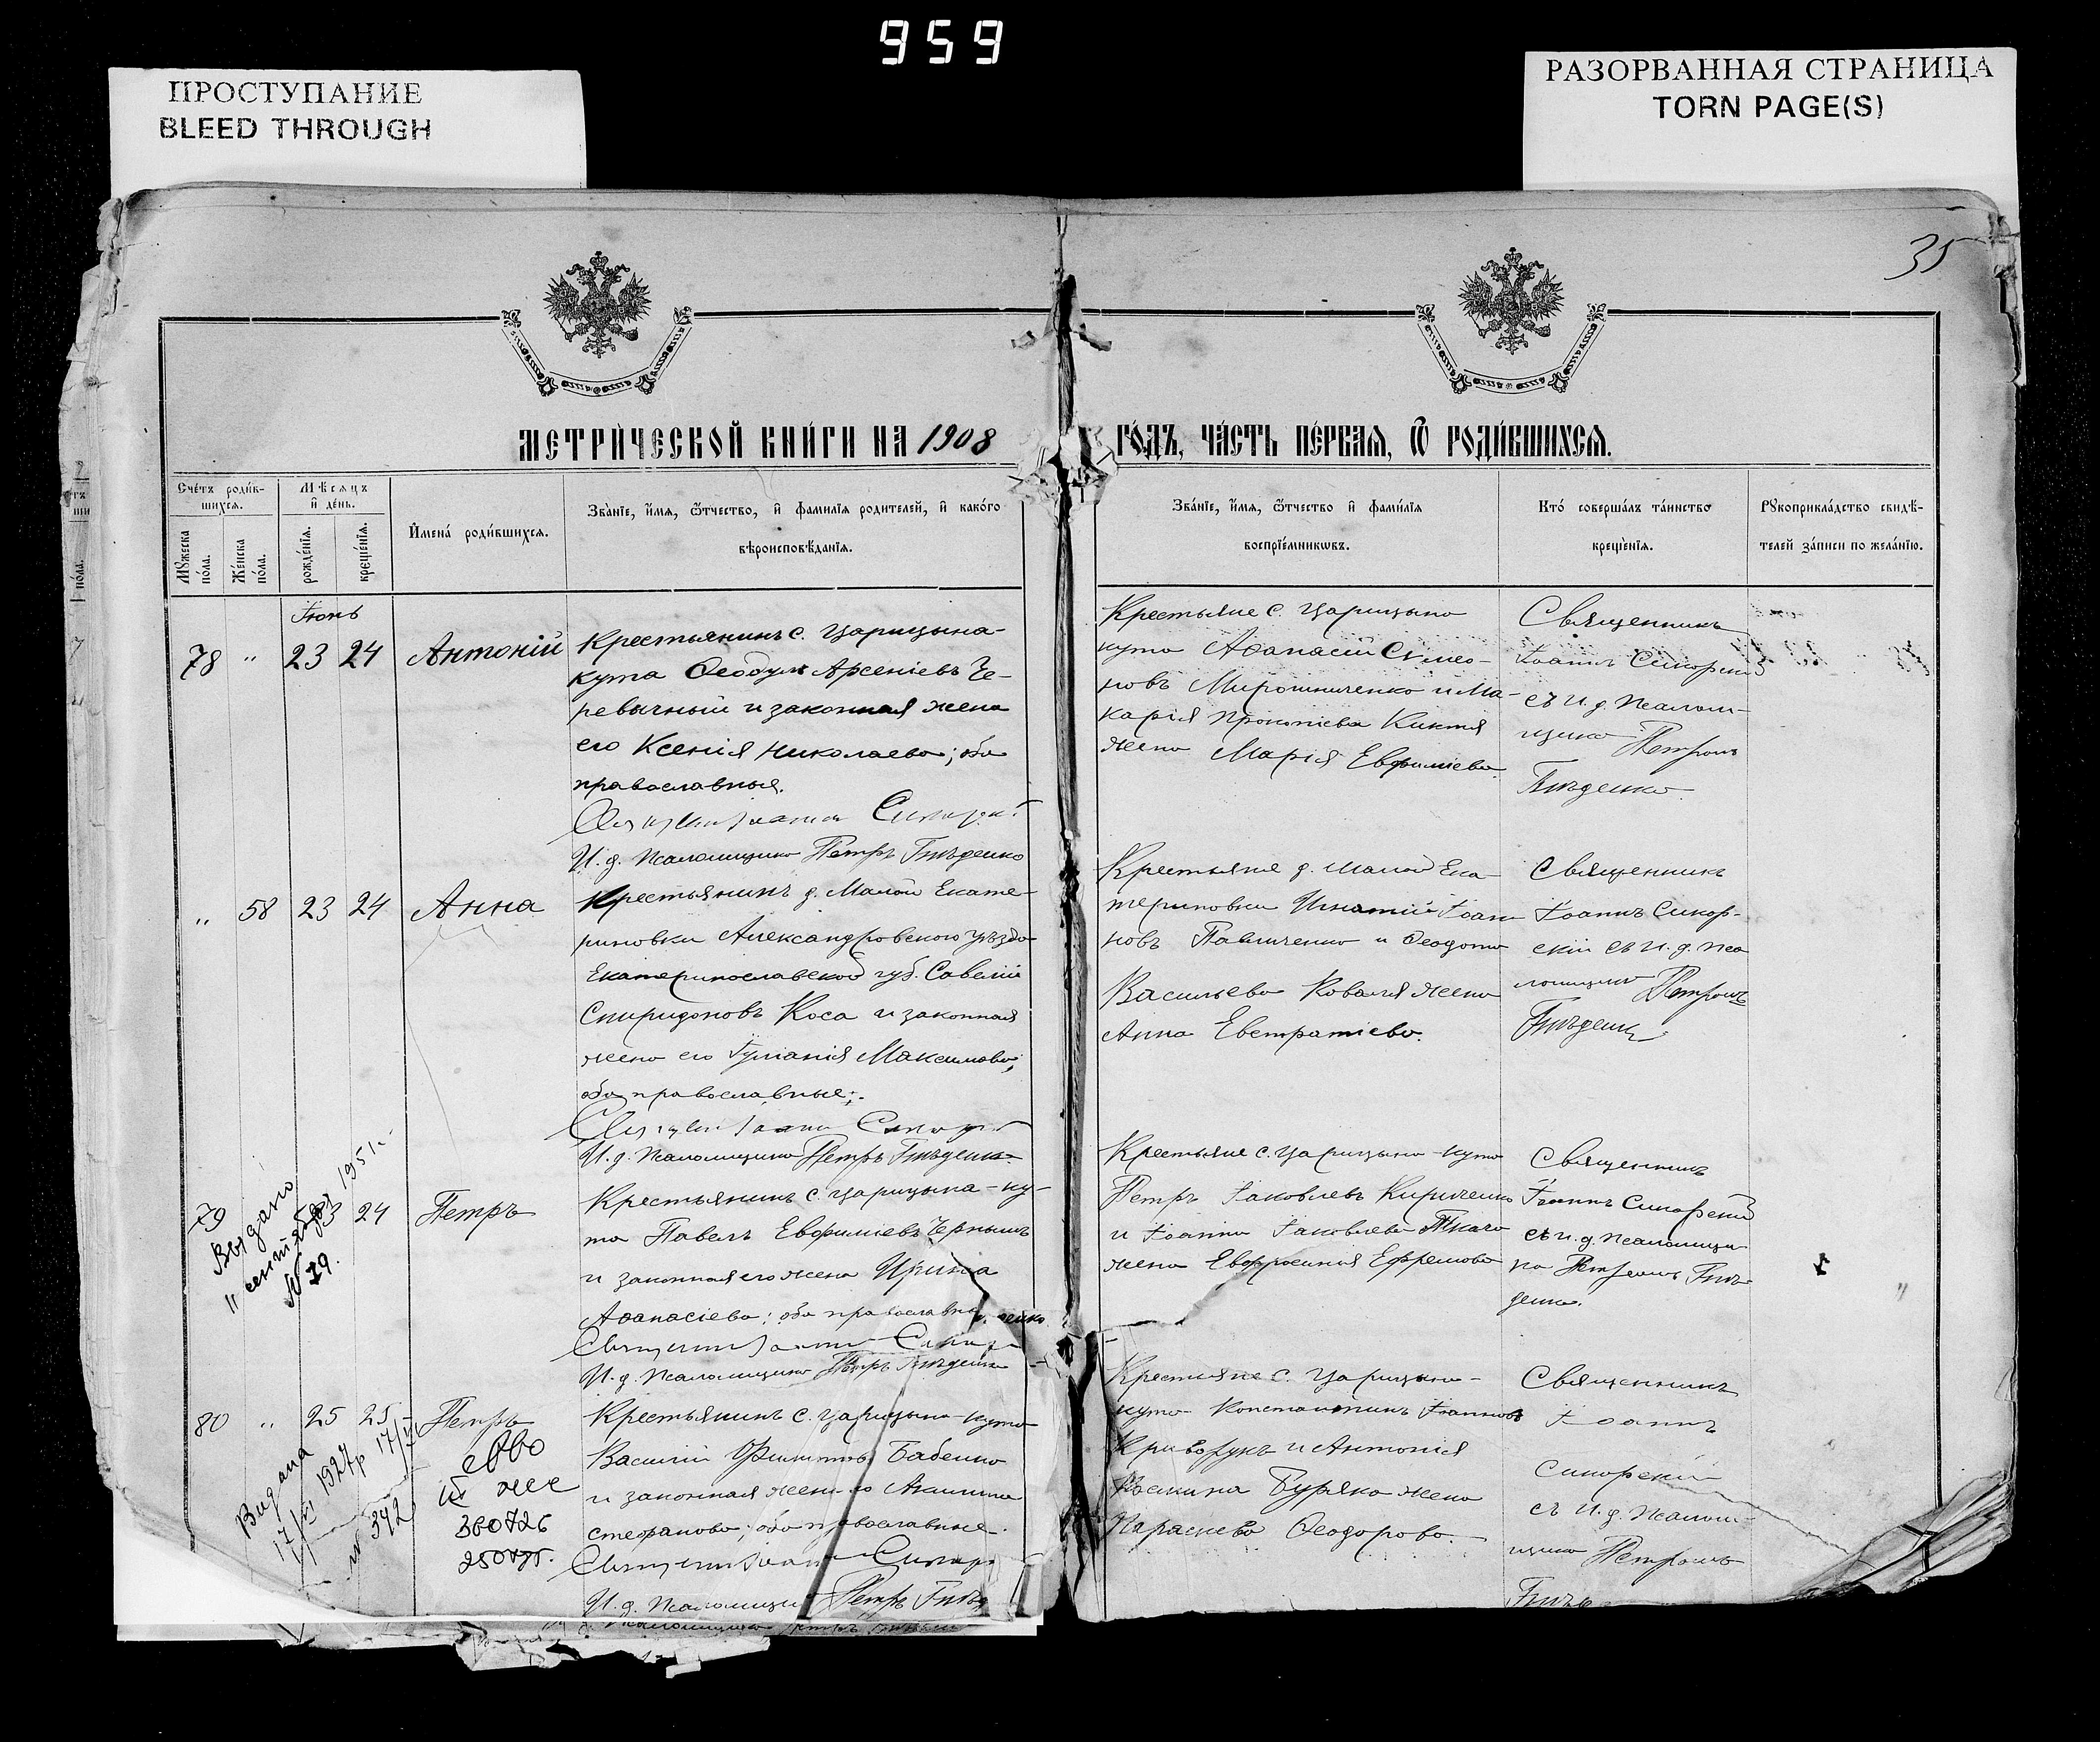 959
ПРОСТУПАНИЕ
BLEED THROUGH
РАЗОРВАННАЯ СТРАНИЦА
TORN PAGE(S)
35
МЕТРИ́ЧЕСКОЙ КНИ́ГИ НА 1908
ГО́ДЪ, ЧА́СТЬ ПЕ́РВАЯ, Ѿ РОДИ́ВШИХСЯ.
Сче́тъ роди́вшихся.
Мѣ́сяцъ и҆ де́нь.
Мꙋ́жеска по́ла.
Же́нска по́ла.
рожде́нїѧ.
креще́нїѧ.
И҆мена́ роди́вшихся.
Зва́нїе, и҆́мѧ, ѻ҆́тчество, и҆ фами́лїѧ роди́телей, и҆ како́гѡ
вѣроисповѣ́данїѧ.
Зва́нїе, и҆́мѧ, ѻ҆́тчество и҆ фами́лїѧ
воспрїе́мникѡвъ.
Кто́ соверша́лъ та́инство
креще́нїѧ.
Рꙋкоприкла́дство свидѣ́-
телей за́писи по жела́нїю.
Іюнь
78 " 23 24 Антоній
Крестьянинъ с. Царицына-
кута Ѳеодулъ Арсеніевъ Че-
ревычный и законная жена
его Ксенія Николаева; оба
православныя.
И. д. псаломщика Петръ Гнѣденко
Крестьяне с. Царицына
кута Аѳанасій Симео-
новъ Мирошниченко и Ма-
карія Прокопіева Киктя
жена Марія Евфиміева.
Священникъ
Іоаннъ Сикорскій
съ и. д. псалом-
щика Петромъ
Гнѣденко.
" 58 23 24 Анна
Крестьянинъ д. Малой Екате-
риновки Александровского уѣзда
Екатеринославской губ. Савелій
Спиридоновъ Коса и законная
жена его Іуліанія Максимова;
оба православные.
И. д. псаломщика Петръ Гнѣденко
Крестьяне д. Малой Ека-
териновки Игнатій Іоан
новъ Павличенко и Ѳеодота
Васильева Коваля жена
Анна Евстратіева.
Священникъ
Іоаннъ Сикор-
скій съ и. д. пса
ломщика Петромъ
79 23 24 Петръ
Крестьянинъ с. Царицына-ку-
та Павелъ Евфиміевъ Чернышъ
и законная его жена Ирина
Аѳанасіева; оба православны
И. д. псаломщика Петръ Гнѣденко
Выдано
" сентября 1951 г.
№ 79.
Крестьяне с. Царицына-кута
Петръ Іаковлевъ Кириченко
и Іоанна Іаковлева Ткача
жена Евфросинія Ефремова
Священникъ
Іоаннъ Сикорскій
съ и. д. псаломщи-
ка Петромъ Гнѣ-
денко.
80 " 25 25 Петръ
Крестьянинъ с. Царицына-кута
Василій Филипповъ Бабенко
и законная жена его Акилина
Стефанова; оба православные.
И. д. псаломщика Петръ Гнѣд
Видана
17/VI 1927 р 17/VI
№ 392
Крестьяне с. Царицына-
кута Константинъ Іоанновъ
Криворукъ и Антонія
Космина Буряка жена
Параскева Ѳеодорова.
Священникъ
Іоаннъ
Сикорскій
съ и. д. псалом-
щика Петромъ